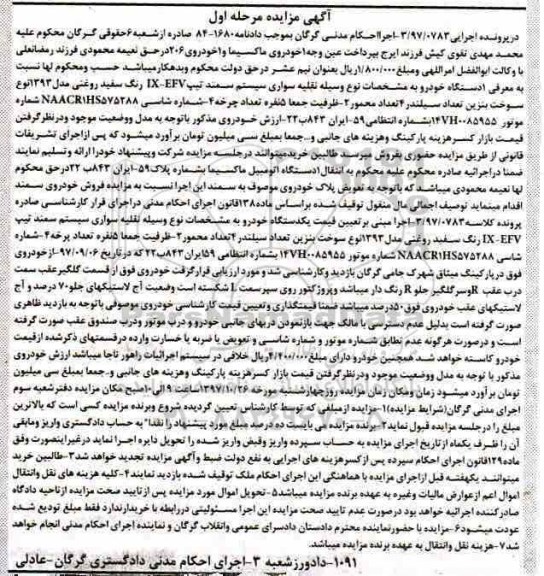 آگهی مزایده مرحله اول
درپرونده اجرایی۳/۹۷/۰۷۸۳-اجرااحکام مدنی گرگان بموجب دادنامه۱۶۸۰-۸۴ صادره ازشعبه۶حقوقی گرگان محکوم علیه
محمد مهدی تقوی کیش فرزند ایرج بپرداخت عین وجه۱خودروی ماکسیما و۱خودروی۲۰۶درحق نعیمه محمودی فرزند رمضانعلی
با وکالت ابوالفضل امراللهی ومبلغ۱/۸۰۰/۰۰۰ریال بعنوان نیم عشر درحق دولت محکوم وبدهکارمیباشد حسب ومحکوم لها نسبت
به معرفی ۱دستگاه خودرو به مشخصات نوع وسیله نقلیه سواری سیستم سمند تیپIX-EFV رنگ سفید روغنی مدل۱۳۹۳نوع
سوخت بنزین تعداد سیلندر۴تعداد محمور۲-ظرفیت جمعا ۵نفره تعداد چرخه۴-شماره شاسی NAACR۱HS۵۷۵۲۸۸ شماره
موتور ۱۴VH۰۰۸۵۹۵۵بشماره انتظامی۵۹-ایران ۸۴۳ب۲۲-ارزش خودروی مذکور باتوجه به مدل ووضعیت موجود ودرنظرگرفتن
قیمت بازار کسرهزینه پارکینگ وهزینه های جانبی و..جمعا بمبلغ سی میلیون تومان برآورد میشود که پس ازاجرای تشریفات
قانونی از طریق مزایده حضوری بفروش میرسد.طالبین خریدمیتوانند درجلسه مزایده شرکت وپیشنهاد خودرا ارائه وتسلیم نمایند
ضمنا دراجرائیه صادره محکوم علیه محکوم به انتقال۱دستگاه اتومبیل ماکسیما بشماره پلاک۵۹-ایران ۸۴۳ب ۲۲درحق محکوم
لها نعیمه محمودی میباشد که باتوجه به تعویض پلاک خودروی موصوف به سمند این اجرا نسبت به مزایده فروش خودروی سمند
اقدام مینماید توصیف اجمالی مال منقول توقیف شده براساس ماده۱۳۸قانون اجرای احکام مدنی دراجرای قرار کارشناسی صادره
پرونده کلاسه۳/۹۷/۰۷۸۳-اجرا مبنی برتعیین قیمت یکدستگاه خودرو به مشخصات نوع وسیله نقلیه سواری سیستم سمند تیپ
IX-EFV رنگ سفید روغنی مدل۱۳۹۳نوع سوخت بنزین تعداد سیلندر۴تعداد محمور۲-ظرفیت جمعا ۵نفره تعداد چرخه۴-شماره
شاسی NAACR۱HS۵۷۵۲۸۸شماره موتور ۱۴VH۰۰۸۵۹۵۵ بشماره انتظامی ۵۹ایران ۸۴۳ب۲۲ که در تاریخ ۹۷/۰۹/۰۶-ازخودروی
فوق درپارکینگ میثاق شهرک جامی گرگان بازدید وکارشناسی شد و مورد ارزیابی قرارگرفت خودروی فوق از قسمت گلگیرعقب سمت
درب عقب R وسرگلگیر جلو R رنگ دار میباشد وپروژکتور روی سپرسمت L شکسته است وضعیت آج لاستیکهای جلو۷۰ درصد و آج
لاستیکهای عقب خودروی فوق۵۰درصد میباشد ضمنا قیمتگذاری وتعیین قیمت کارشناسی خودروی موصوفی باتوجه به بازدید ظاهری
صورت گرفته است بدلیل عدم دسترسی با مالک جهت بازنمودن دربهای جانبی خودرو و درب موتور ودرب صندوق عقب صورت گرفته
است و درصورت هرگونه عدم تطابق شماره موتور و شماره شاسی و تعویض یا ضربه یا خسارت وارده درقسمتهای ذکرشده ازقیمت
خودرو کاسته خواهد شد.همچنین خودرو دارای مبلغ۴/۴۰۰/۰۰۰ریال خلافی در سیستم اجرائیات راهور ناجا میباشد ارزش خودروی
مذکور با توجه به مدل ووضعیت موجود ودرنظرگرفتن قیمت بازار کسرهزینه پارکینگ وهزینه های جانبی و..جمعا بمبلغ سی میلیون
تومان برآورد میشود زمان ومکان زمان مزایده روزچهارشنبه مورخه ۱۳۹۷/۱۰/۲۶ساعت ۹الی۱۰صبح مکان مزایده دفترشعبه سوم
اجرای مدنی گرگان(شرایط مزایده)۱-مزایده ازمبلغی که توسط کارشناس تعیین گردیده شروع وبرنده مزایده کسی است که بالاترین
مبلغا را درجلسه مزایده قبول نماید۲-برنده مزایده می بایست ده درصد مبلغ مورد پیشنهاد را نقدا" به حساب دادگستری واریز ومابقی
آن را ظرف یکماه ازتاریخ اجرای مزایده به حساب سپرده واریز وقبض واریز شده را تحویل دایره اجرا نماید درغیراینصورت وفق
ماده۱۲۹قانون اجرای احکام سپرده پس ازکسرهزینه های اجرایی به نفع دولت ضبط وآگهی مزایده تجدید خواهد شد۳-طالبین خرید
میتوانند یکهفته قبل ازاجرای مزایده با هماهنگی این اجرای احکام ملک توقیف شده بازدید نمایند۴-کلیه هزینه های نقل وانتقال
اموال اعم ازعوارض مالیات وغیره به عهده برنده مزایده میباشد۵-تحویل اموال مورد مزایده پس ازتایید صحت مزایده ازناحیه دادگاه
صادرکننده اجرائیه خواهد بود درصورت عدم تایید صحت مزایده این اجرا مسئولیتی دررابطه با خریدارندارد فقط مبلغ تودیع شده
عودت میشود۶-مزایده با حضورنماینده محترم دادستان دادسرای عمومی وانقلاب گرگان و نماینده اجرای احکام مدنی انجام خواهد
شد۷-هزینه نقل وانتقال به عهده برنده مزایده میباشد.
۱۰۹۱-دادورزشعبه ۳-اجرای احکام مدنی دادگستری گرگان-عادلی